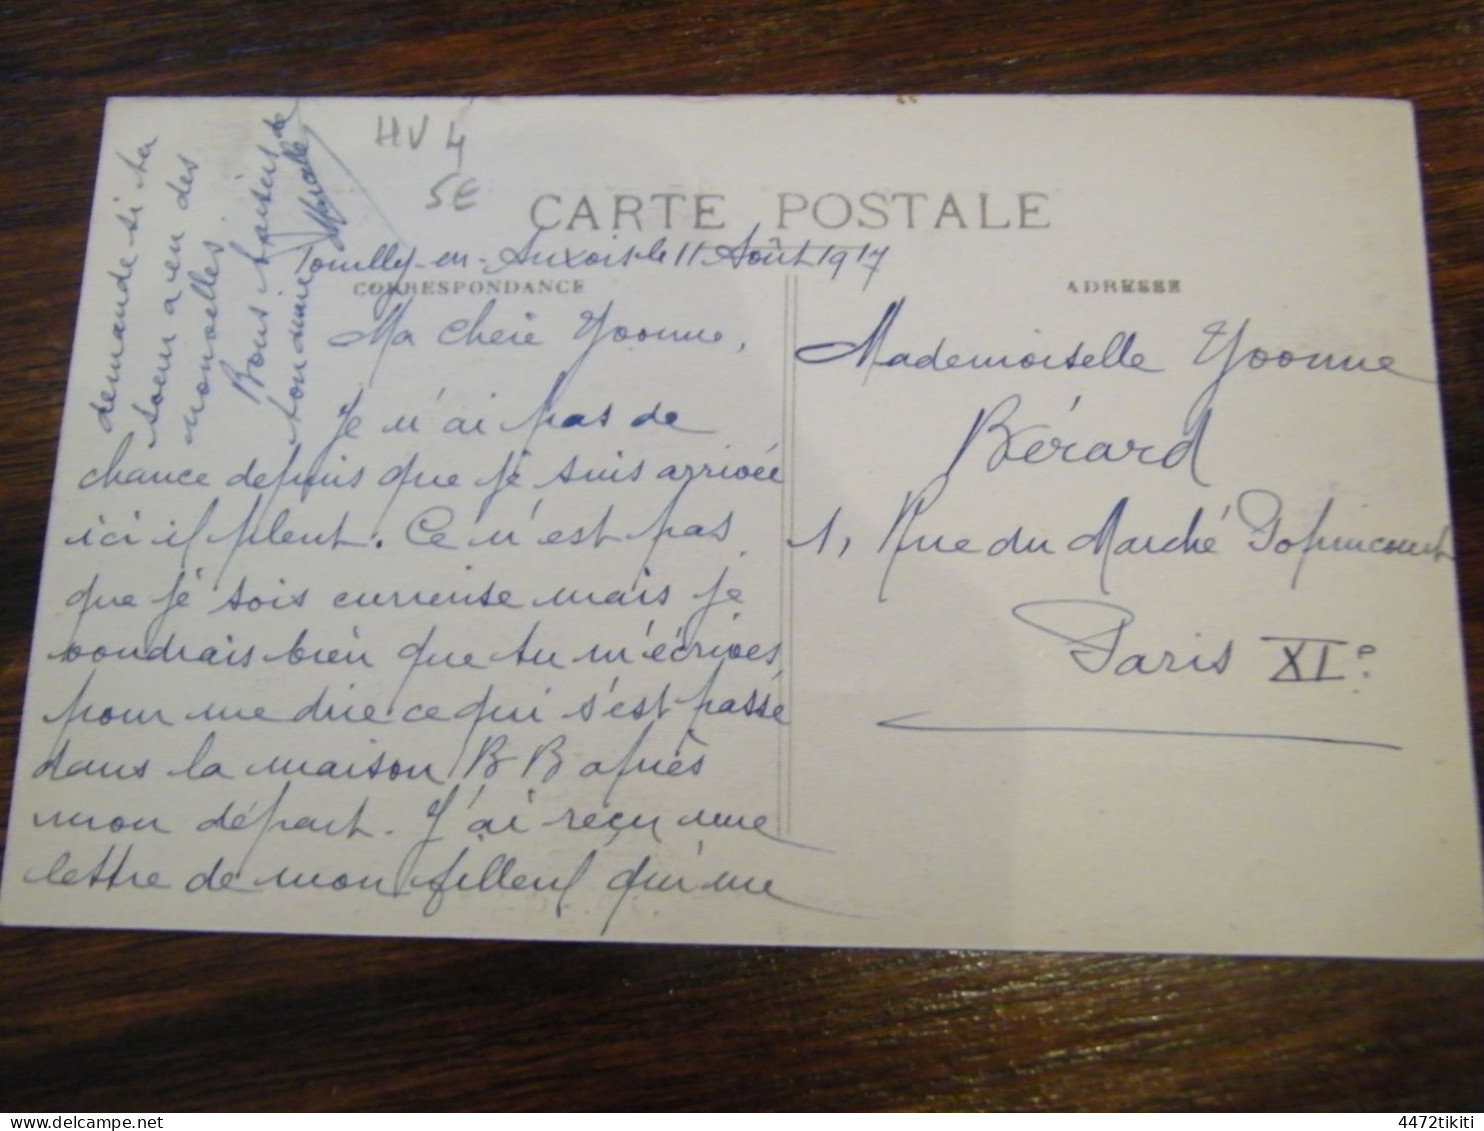 HV 4
5E
CARTE POSTALE
Pouilly-en-Auxois le 11 Août 1917
CORRESPONDANCE
ADRESSE
Ma Cherie Yvonne,
Je n'ai pas de
chance depuis que je suis arrivée
ici il pleut. Ce n'est pas
que je sois currieuse mais je
voudrais bien que tu m'écrives
pour me dire ce qui s'est passé
dans la maison B B après
mon départ. J'ai reçu une
lettre de mon filleul qui me
demande si ta
soeur a eu des
nouvelles
Bons baisers de
ton amie
Marcelle
Mademoiselle Yvonne
Bérard
1, Rue du Marché Popincourt
Paris XIe.
4472tikiti
www.delcampe.net